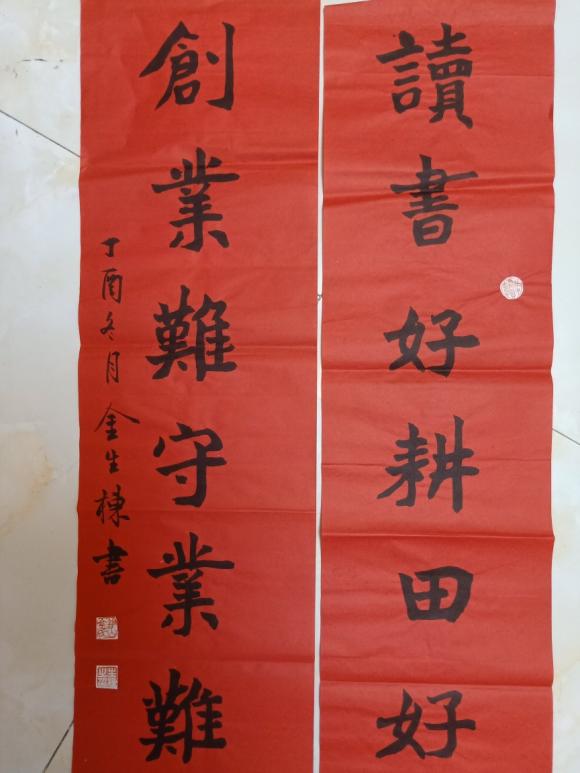 讀書好耕田好
創業難守業難
丁酉冬月金生棟書